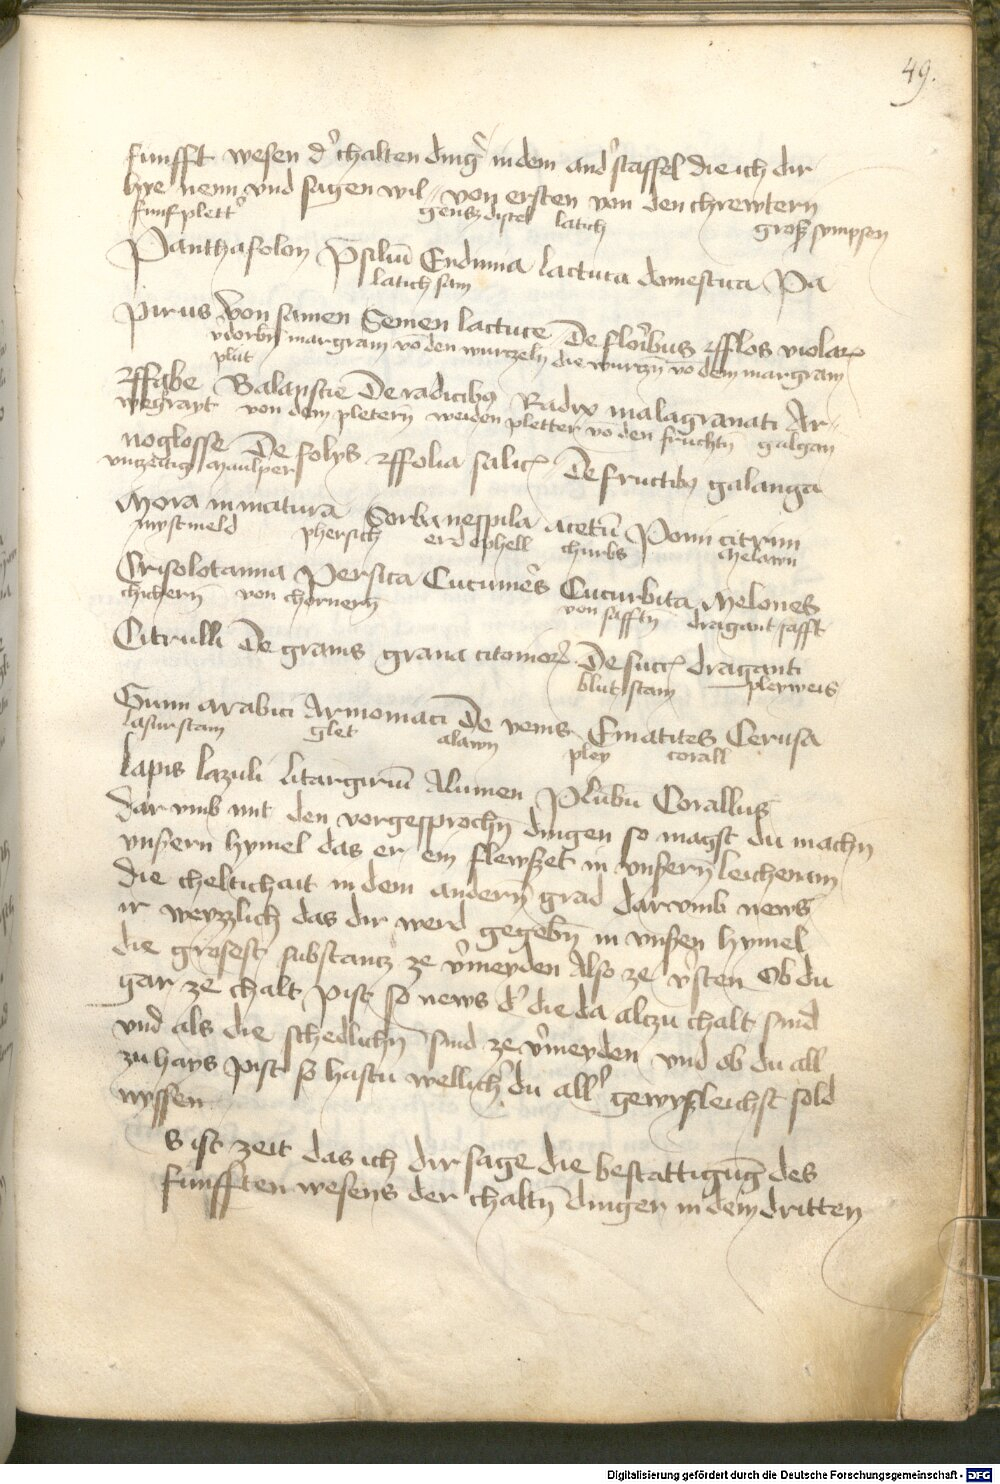 49.
funfft wesen d' chalten ding' in dem and' staffel die ich dir
hye nenn vnd sagen wil von ersten von den chrewtern
funfplett' gensz distel latich groß sympsen
Panthafolon Psiliū Endiuia lactuca domestica Pa
latich sam
pirus Von samen Semen lactuce De floribus Fflos violar
v'dorbn margram vō den wurtzeln die wurtzn vō dem margram
plut
Ffabe Balaustie De radicibus Radix malagranati Ar
wegrayt von dem pletern weiden pletter vō den fruchtn galgan
noglosse De folys Ffolia salic De fructibus galanga
vnzeitig maulper
Mora inmatura Sorba nespila acetū Pomi citrini
mystmeld phersich erd ephell churbs melawn
Crisolotanna Persica Cucumers Cucurbita Melones
chichern von chornern von safftn dragant safft
Citrulli De granis grana citonior De succ draganti
blut stain pleyweis
Gumi arabici Armoniaci De venis Ematites Cerusa
lasur stain glet alawn pley corall
Lapis lazuli litargiriū Alumen Plūbū Corallus
dar vmb mit den vorgesprochn dingen so magst du machn
vnsern hymel das er ein flewsset in vnsern leichenam
die cheltichait in dem andern grad dar vmb news
ir weyzzlich das dir werd gegebn in vnsen hymel
die grosest substancz ze v'meyden Also ze v'sten Ob du
gar ze chalt pist so news d' die da alczu chalt sind
vnd als die schedlichn sind ze v'meyden vnd ob du all
zu hays pist so hastu wellich' du all' gewysleichst sold
wyssen
S ist zeit das ich dir sage die bestattigūg des
funfften wesens der chaltn dinger in dem dritten
Digitalisierung gefördert durch die Deutsche Forschungsgemeinschaft - DFG